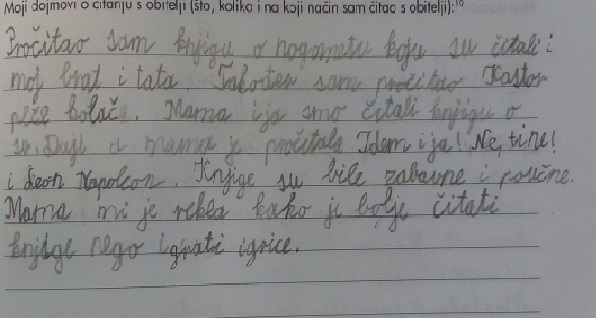 Moji dojmovi o čitanju s obitelji (što, koliko i na koji način sam čitao s obitelji):¹⁰
Pročitao sam knjigu o nogometu koju su čitali i
moj brat i tata. Također sam pročitao Kastor
peče kolač. Mama i ja smo čitali knjigu o
sv. a mama je pročitala Idem i ja! Ne, ti ne!
i Leon Napoleon. Knjige su bile zabavne i poučne.
Mama mi je rekla kako je bolje čitati
knjige nego igrati igrice.